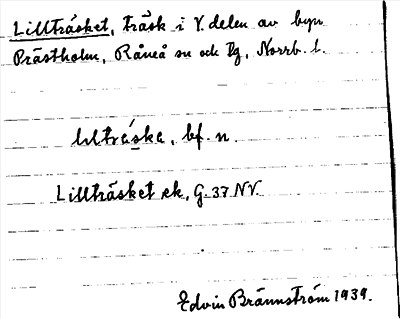 Lillträsket, träsk i V. delen av byn
Prästholm, Råneå sn och tg, Norrb. l.
lılträske, bf. n.
Lillträsket ek, G. 37 NV.
Edvin Brännström 1939.